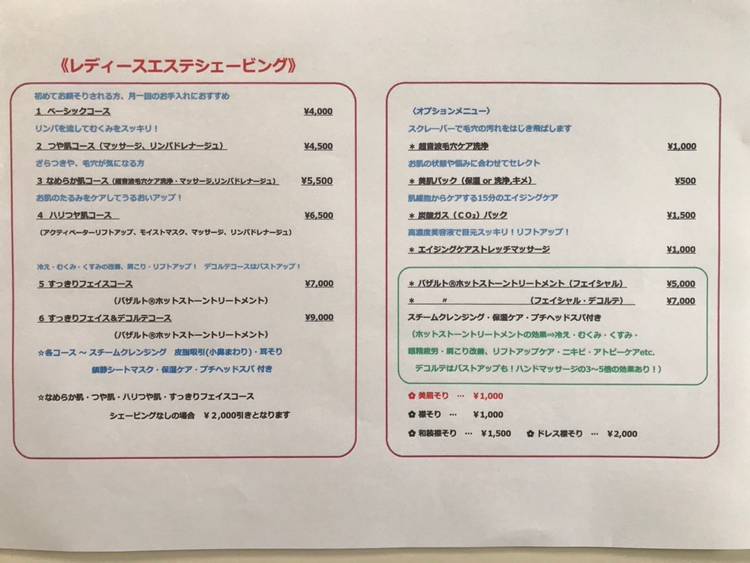 《レディースエステシェービング》
初めてお顔そりされる方、月一回のお手入れにおすすめ
1 ベーシックコース ¥4,000
リンパを流してむくみをスッキリ！
2 つや肌コース（マッサージ、リンパドレナージュ） ¥4,500
ざらつきや、毛穴が気になる方
3 なめらか肌コース（超音波毛穴ケア洗浄・マッサージ,リンパドレナージュ） ¥5,500
お肌のたるみをケアしてうるおいアップ！
4 ハリツヤ肌コース ¥6,500
（アクティベーターリフトアップ、モイストマスク、マッサージ、リンパドレナージュ）
冷え・むくみ・くすみの改善、肩こり・リフトアップ！ デコルテコースはバストアップ！
5 すっきりフェイスコース ¥7,000
（バザルト®ホットストーントリートメント）
6 すっきりフェイス&デコルテコース ¥9,000
（バザルト®ホットストーントリートメント）
☆各コース ～ スチームクレンジング 皮脂吸引(小鼻まわり)・耳そり
鎮静シートマスク・保湿ケア・プチヘッドスパ 付き
☆なめらか肌・つや肌・ハリつや肌・すっきりフェイスコース
シェービングなしの場合 ¥2,000引きとなります
〈オプションメニュー〉
スクレーバーで毛穴の汚れをはじき飛ばします
＊ 超音波毛穴ケア洗浄 ¥1,000
お肌の状態や悩みに合わせてセレクト
＊ 美肌パック（保湿 or 洗浄,キメ） ¥500
肌細胞からケアする15分のエイジングケア
＊ 炭酸ガス（CO₂）パック ¥1,500
高濃度美容液で目元スッキリ！リフトアップ！
＊ エイジングケアストレッチマッサージ ¥1,000
＊ バザルト®ホットストーントリートメント（フェイシャル） ¥5,000
＊ 〃 （フェイシャル・デコルテ） ¥7,000
スチームクレンジング・保湿ケア・プチヘッドスパ付き
（ホットストーントリートメントの効果⇒冷え・むくみ・くすみ・
眼精疲労・肩こり改善、リフトアップケア・ニキビ・アトピーケアetc.
デコルテはバストアップも！ハンドマッサージの3～5倍の効果あり！）
✿ 美眉そり … ¥1,000
✿ 襟そり … ¥1,000
✿ 和装襟そり … ¥1,500 ✿ ドレス襟そり … ¥2,000